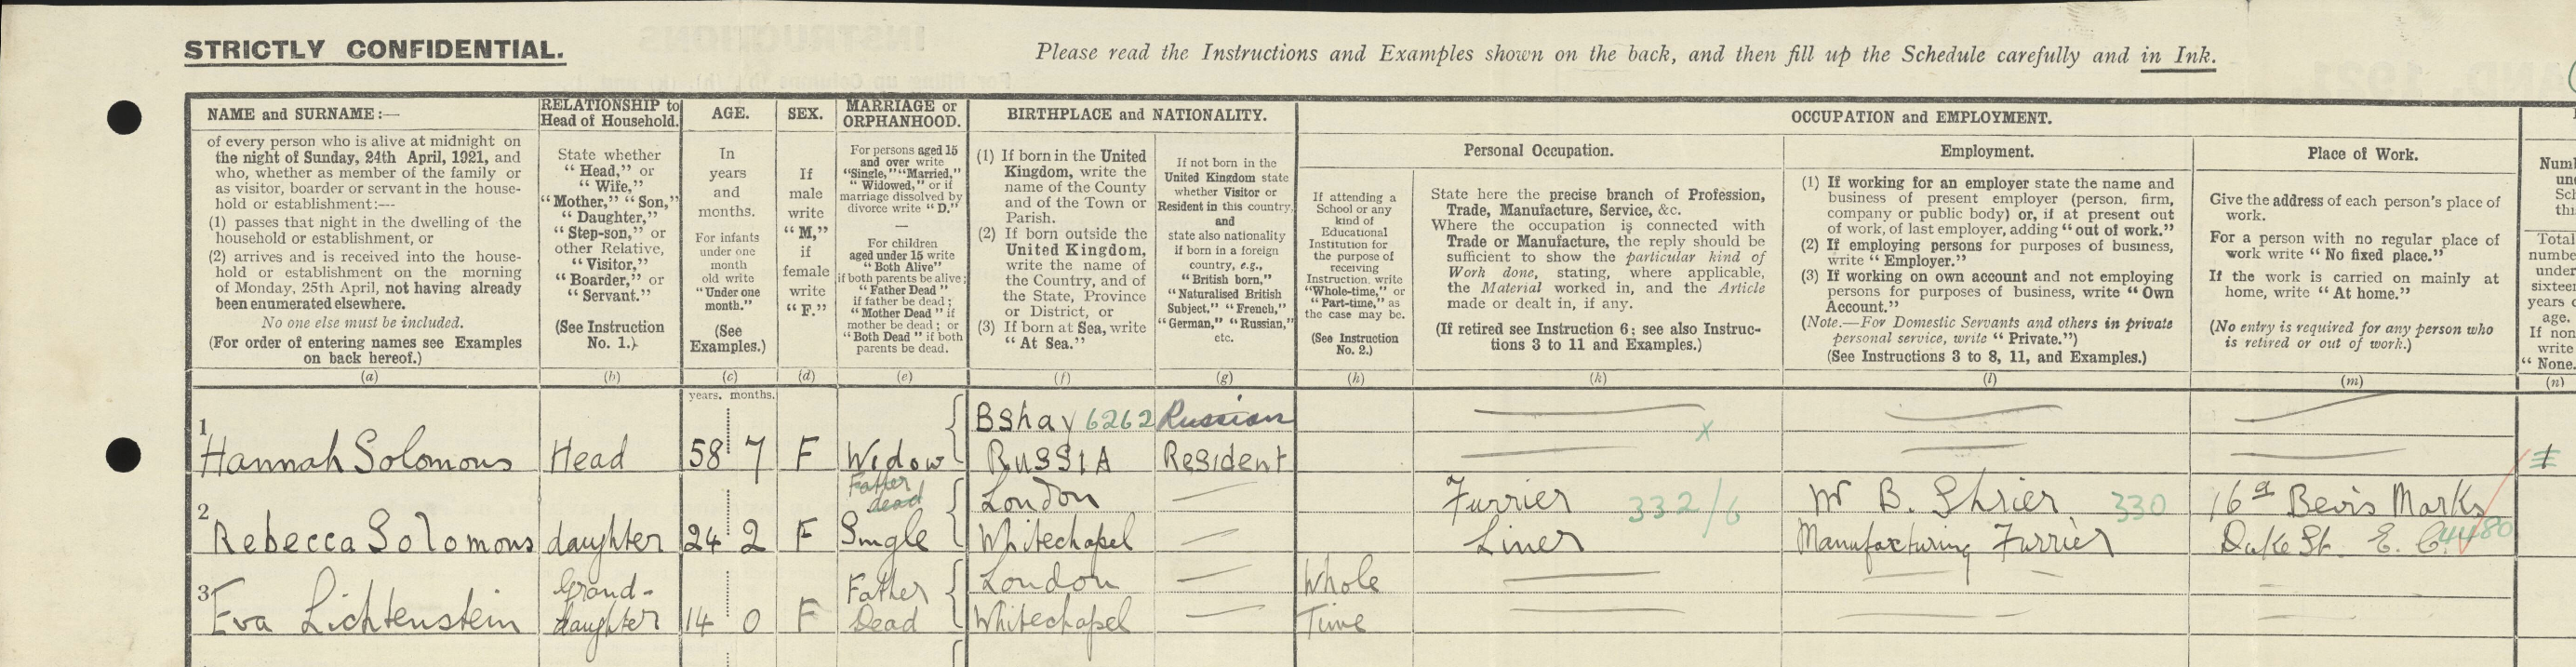 STRICTLY CONFIDENTIAL.
Please read the Instructions and Examples shown on the back, and then fill up the Schedule carefully and in Ink.
NAME and SURNAME:—
of every person who is alive at midnight on
the night of Sunday, 24th April, 1921, and
who, whether as member of the family or
as visitor, boarder or servant in the house-
hold or establishment:—
(1) passes that night in the dwelling of the
household or establishment, or
(2) arrives and is received into the house-
hold or establishment on the morning
of Monday, 25th April, not having already
been enumerated elsewhere.
No one else must be included.
(For order of entering names see Examples
on back hereof.)
(a)
RELATIONSHIP to
Head of Household.
State whether
"Head," or
"Wife,"
"Mother," "Son,"
"Daughter,"
"Step-son," or
other Relative,
"Visitor,"
"Boarder," or
"Servant."
(See Instruction
No. 1.)
(b)
AGE.
In
years
and
months.
For infants
under one
month
old write
"Under one
month."
(See
Examples.)
(c)
SEX.
If
male
write
"M,"
if
female
write
"F."
(d)
MARRIAGE or
ORPHANHOOD.
For persons aged 15
and over write
"Single," "Married,"
"Widowed," or if
marriage dissolved by
divorce write "D."
—
For children
aged under 15 write
"Both Alive"
if both parents be alive;
"Father Dead"
if father be dead;
"Mother Dead" if
mother be dead; or
"Both Dead" if both
parents be dead.
(e)
BIRTHPLACE and NATIONALITY.
(1) If born in the United
Kingdom, write the
name of the County
and of the Town or
Parish.
(2) If born outside the
United Kingdom,
write the name of
the Country, and of
the State, Province
or District, or
(3) If born at Sea, write
"At Sea."
(f)
If not born in the
United Kingdom state
whether Visitor or
Resident in this country,
and
state also nationality
if born in a foreign
country, e.g.,
"British born,"
"Naturalised British
Subject," "French,"
"German," "Russian,"
etc.
(g)
OCCUPATION and EMPLOYMENT.
If attending a
School or any
kind of
Educational
Institution for
the purpose of
receiving
Instruction, write
"Whole-time," or
"Part-time," as
the case may be.
(See Instruction
No. 2.)
(h)
Personal Occupation.
State here the precise branch of Profession,
Trade, Manufacture, Service, &c.
Where the occupation is connected with
Trade or Manufacture, the reply should be
sufficient to show the particular kind of
Work done, stating, where applicable,
the Material worked in, and the Article
made or dealt in, if any.
(If retired see Instruction 6; see also Instruc-
tions 3 to 11 and Examples.)
(k)
Employment.
(1) If working for an employer state the name and
business of present employer (person, firm,
company or public body) or, if at present out
of work, of last employer, adding "out of work."
(2) If employing persons for purposes of business,
write "Employer."
(3) If working on own account and not employing
persons for purposes of business, write "Own
Account."
(Note.—For Domestic Servants and others in private
personal service, write "Private.")
(See Instructions 3 to 8, 11, and Examples.)
(l)
Place of Work.
Give the address of each person's place of
work.
For a person with no regular place of
work write "No fixed place."
If the work is carried on mainly at
home, write "At home."
(No entry is required for any person who
is retired or out of work.)
(m)
Total
numbe
under
sixteen
years o
age.
If non
write
"None.
(n)
years. months.
Bshay 6262 Russian
1 Hannah Solomons Head 58 7 F Widow RUSSIA Resident x
Father dead London — Furrier 332/6 W B. Shrier 330 16a Bevis Marks
2 Rebecca Solomons daughter 24 2 F Single Whitechapel — Liner Manufacturing Furrier Duke St. E. C. 4480
Grand- Father London — Whole
3 Eva Lichtenstein daughter 14 0 F Dead Whitechapel — Time